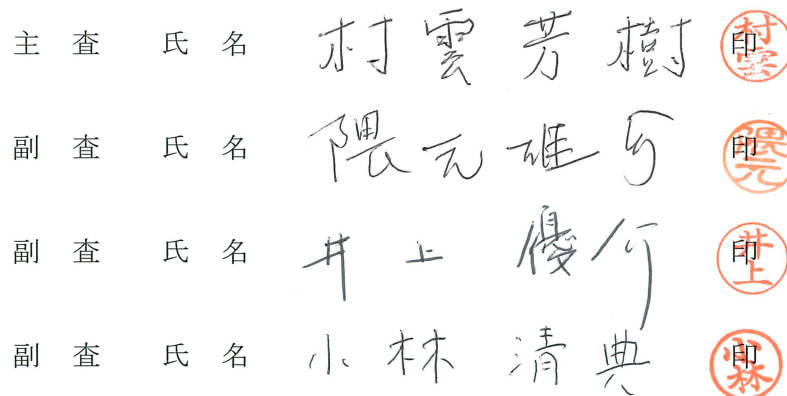 主査 氏名 村雲芳樹 印 村雲
副査 氏名 隈元雄介 印 隈元
副査 氏名 井上優介 印 井上
副査 氏名 小林清典 印 小林